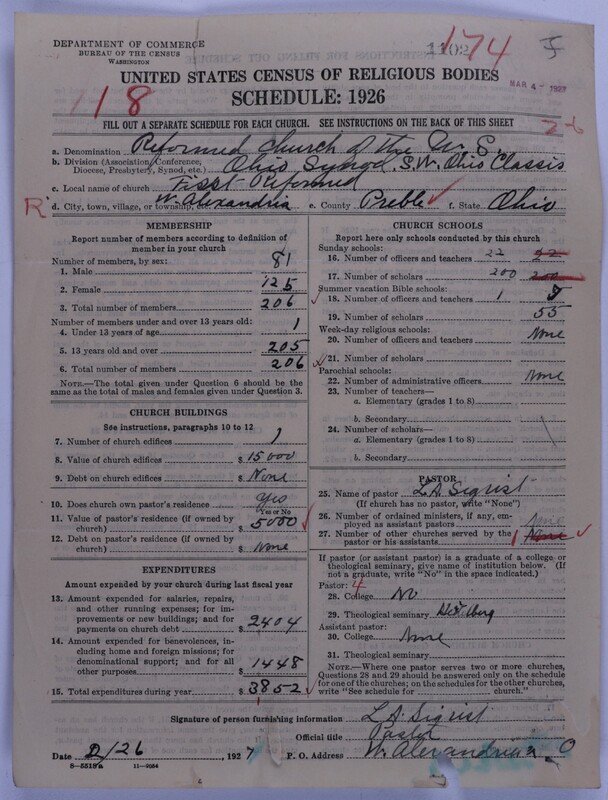 DEPARTMENT OF COMMERCE
BUREAU OF THE CENSUS
WASHINGTON
1102
174
118
MAR 4 - 1927
UNITED STATES CENSUS OF RELIGIOUS BODIES
SCHEDULE: 1926
FILL OUT A SEPARATE SCHEDULE FOR EACH CHURCH. SEE INSTRUCTIONS ON THE BACK OF THIS SHEET
a. Denomination Reformed Church of the U. S.
b. Division (Association, Conference, Diocese, Presbytery, Synod, etc.) Ohio Synod, S.W. Ohio Classis
c. Local name of church First Reformed
R d. City, town, village, or township, etc. W. Alexandria e. County Preble f. State Ohio
MEMBERSHIP
Report number of members according to definition of
member in your church
Number of members, by sex:
1. Male 81
2. Female 125
3. Total number of members 206
Number of members under and over 13 years old:
4. Under 13 years of age 1
5. 13 years old and over 205
6. Total number of members 206
NOTE.—The total given under Question 6 should be
the same as the total of males and females given under Question 3.
CHURCH BUILDINGS
See instructions, paragraphs 10 to 12
7. Number of church edifices 1
8. Value of church edifices $ 15000
9. Debt on church edifices $ None
10. Does church own pastor's residence Yes
Yes or No
11. Value of pastor's residence (if owned by
church) $ 5000
12. Debt on pastor's residence (if owned by
church) $ None
EXPENDITURES
Amount expended by your church during last fiscal year
13. Amount expended for salaries, repairs,
and other running expenses; for im-
provements or new buildings; and for
payments on church debt $ 2404
14. Amount expended for benevolences, in-
cluding home and foreign missions; for
denominational support; and for all
other purposes $ 1448
15. Total expenditures during year $ 3852
CHURCH SCHOOLS
Report here only schools conducted by this church
Sunday schools:
16. Number of officers and teachers 22 22
17. Number of scholars 200 200
Summer vacation Bible schools:
18. Number of officers and teachers 1
19. Number of scholars 55
Week-day religious schools:
20. Number of officers and teachers None
21. Number of scholars
Parochial schools:
22. Number of administrative officers None
23. Number of teachers—
a. Elementary (grades 1 to 8)
b. Secondary
24. Number of scholars—
a. Elementary (grades 1 to 8)
b. Secondary
PASTOR
25. Name of pastor L.A. Sigrist
(If church has no pastor, write "None")
26. Number of ordained ministers, if any, em-
ployed as assistant pastors None
27. Number of other churches served by the
pastor or his assistants 1 None
If pastor (or assistant pastor) is a graduate of a college or
theological seminary, give name of institution below. (If
not a graduate, write "No" in the space indicated.)
Pastor: 4
28. College No
29. Theological seminary
Assistant pastor:
30. College None
31. Theological seminary
NOTE.—Where one pastor serves two or more churches,
Questions 28 and 29 should be answered only on the schedule
for one of the churches; on the schedules for the other churches,
write "See schedule for church."
Signature of person furnishing information L.A. Sigrist
Official title Pastor
Date 2/26, 1927 P. O. Address W. Alexandria, O
8-5518a 11-9084